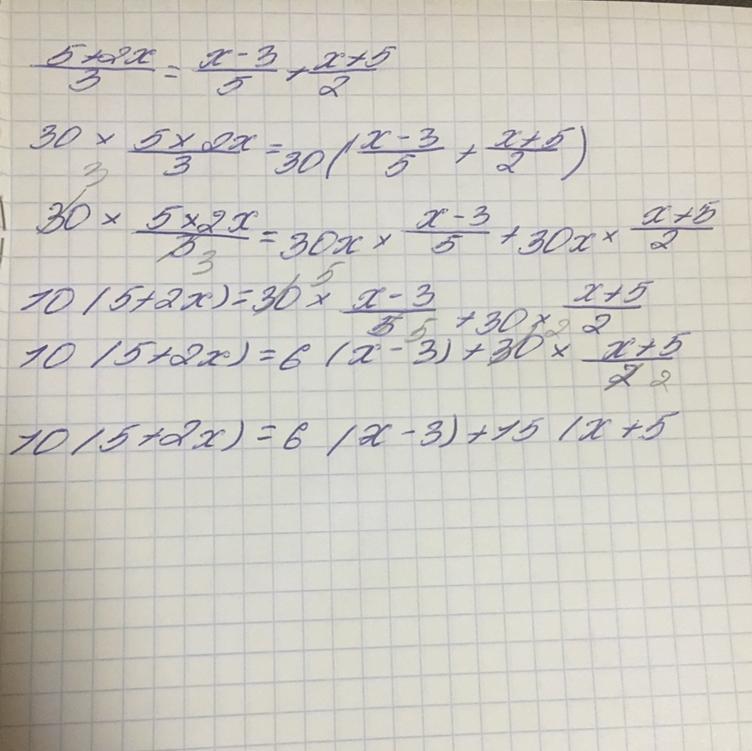 (5+2x)/3 = (x-3)/5 + (x+5)/2
30 × (5×2x)/3 = 30((x-3)/5 + (x+5)/2)
30 × (5×2x)/3 = 30x × (x-3)/5 + 30x × (x+5)/2
10(5+2x) = 30 × (x-3)/5 + 30 × (x+5)/2
10(5+2x) = 6(x-3) + 30 × (x+5)/2
10(5+2x) = 6(x-3) + 15(x+5